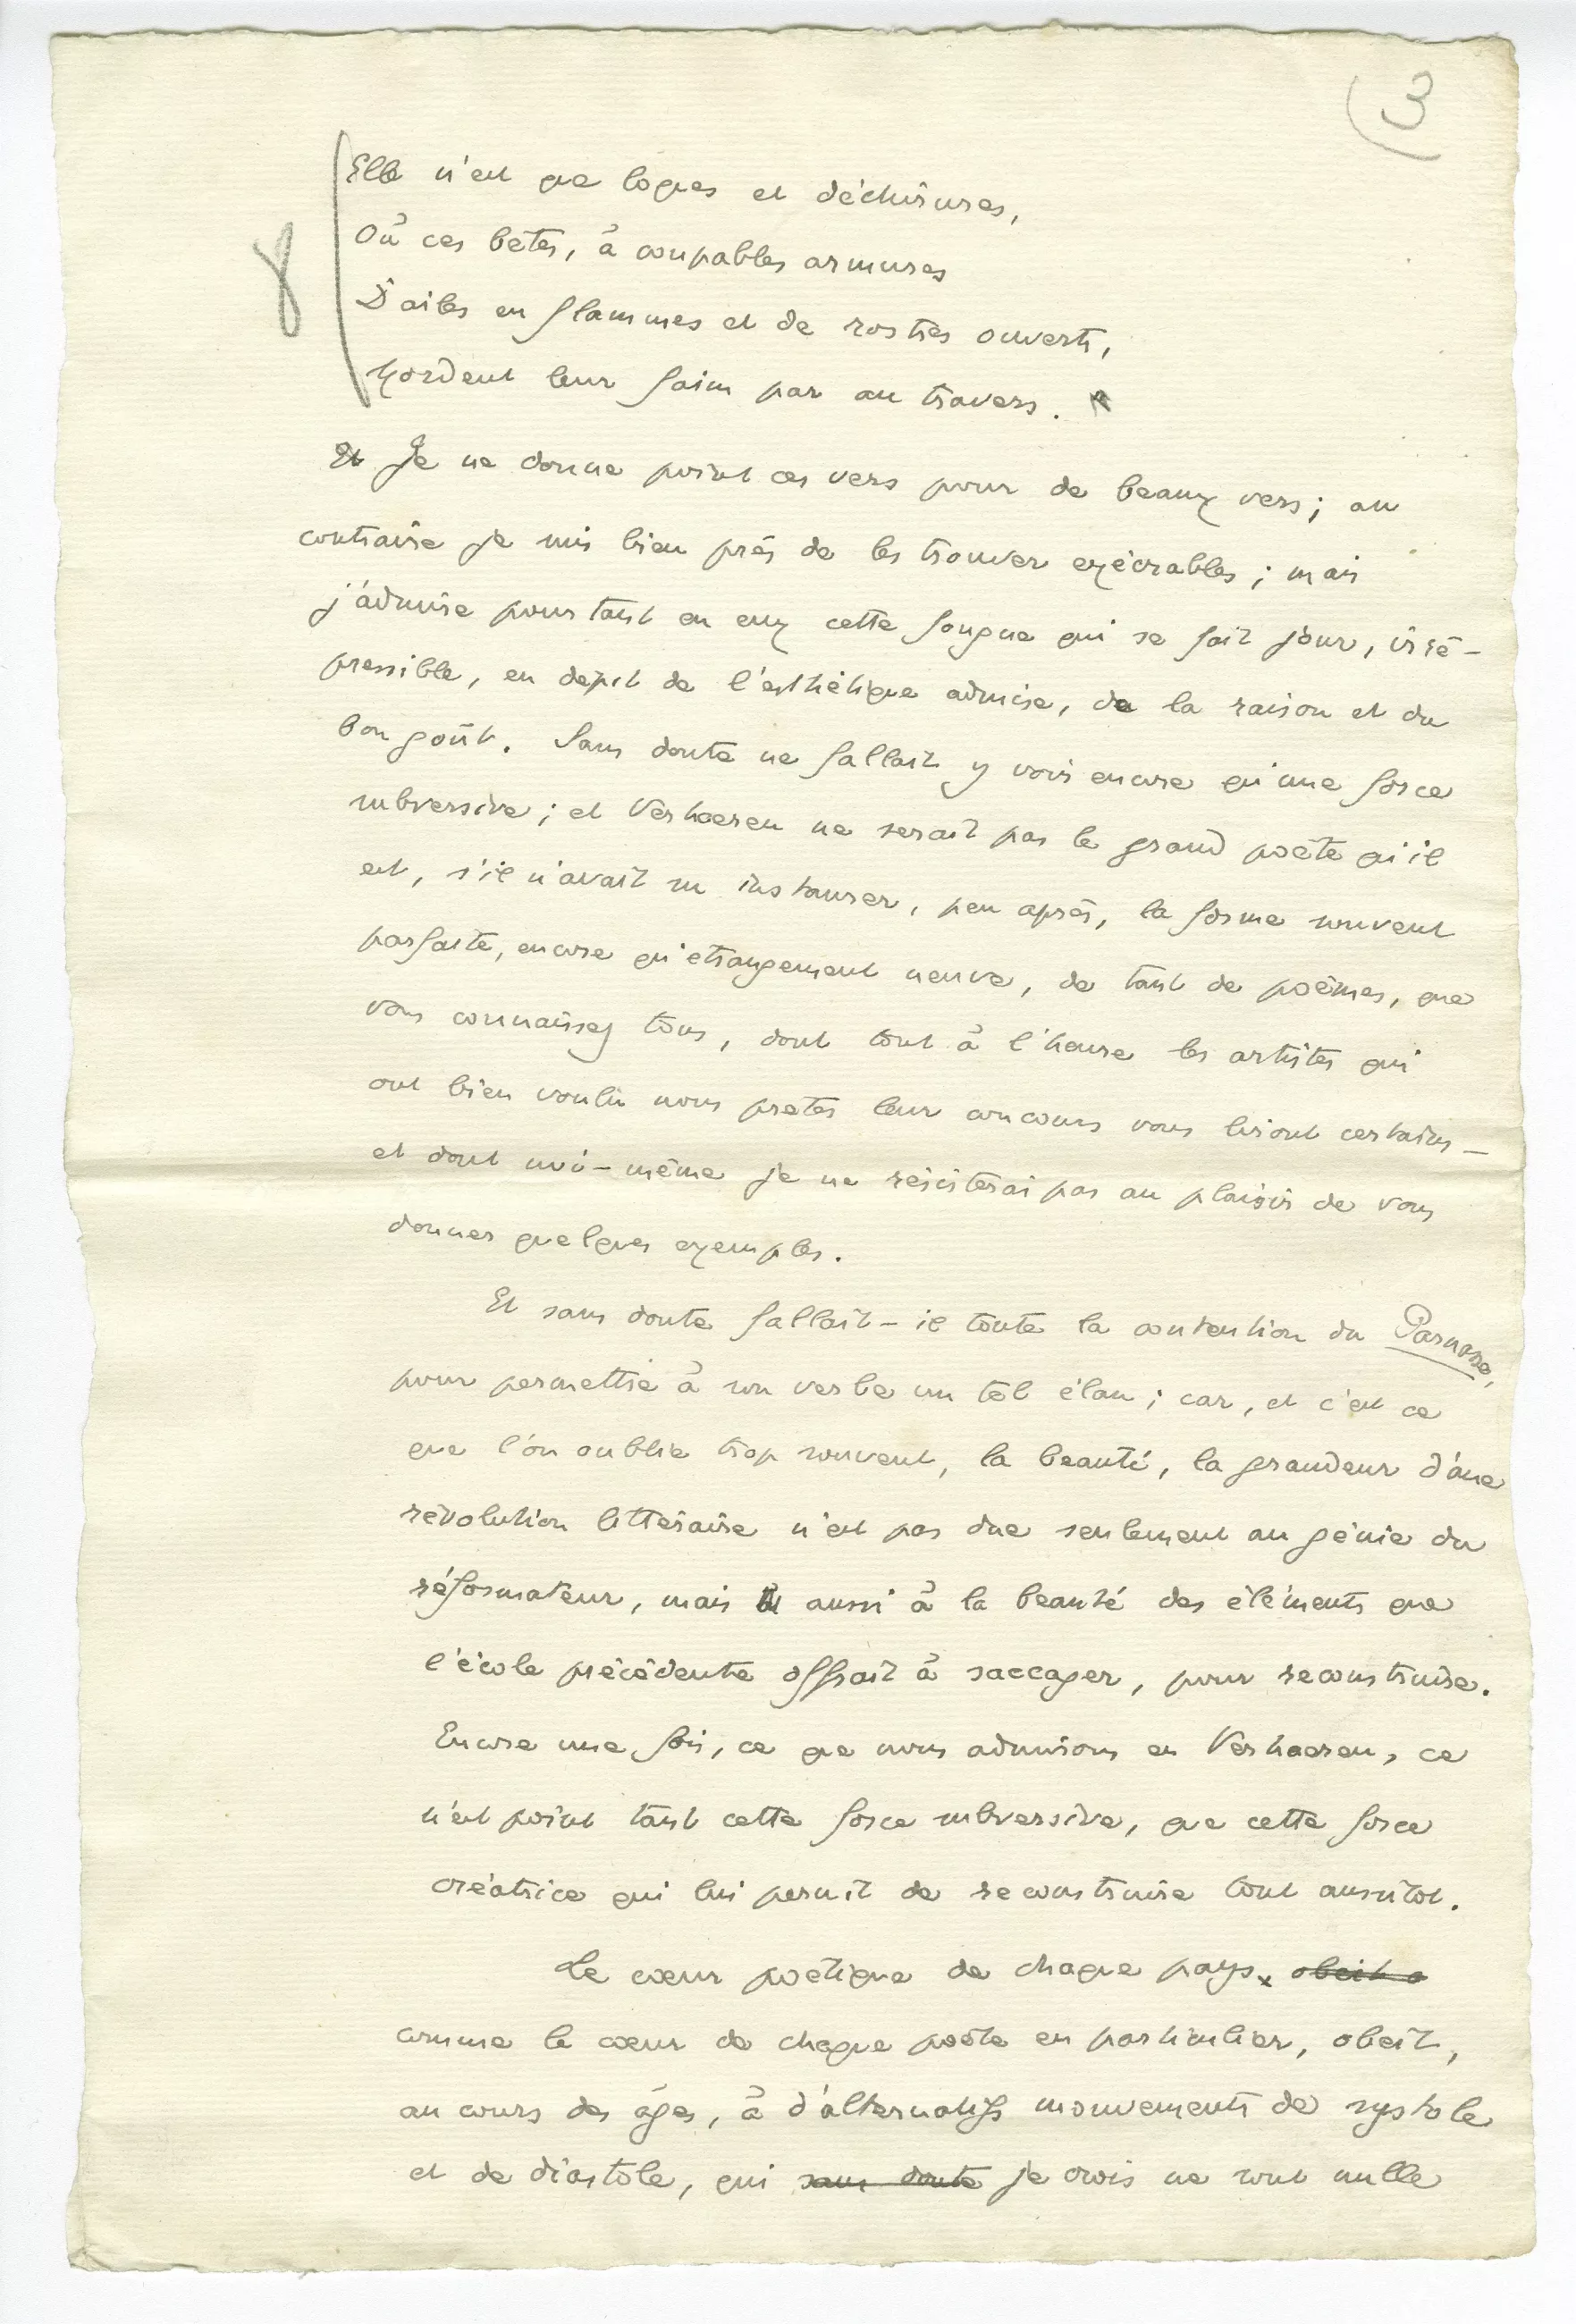 3
8
Elle n'est que loques et déchirures,
Où ces bêtes, à coupables armures
D'ailes en flammes et de rostres ouverts,
Mordent leur faim par au travers.
Et Je ne donne point ces vers pour de beaux vers ; au
contraire je suis bien près de les trouver exécrables ; mais
j'admire pourtant en eux cette fougue qui se fait jour, irré-
pressible, en dépit de l'esthétique admise, de la raison et du
bon goût. Sans doute ne fallait y voir encore qu'une force
subversive ; et Verhaeren ne serait pas le grand poète qu'il
est, s'il n'avait su instaurer, peu après, la forme souvent
parfaite, encore qu'etrangement neuve, de tant de poèmes, que
vous connaissez tous, dont tout à l'heure les artistes qui
ont bien voulu nous preter leur concours vous liront certains –
et dont moi-même je ne résisterai pas au plaisir de vous
donner quelques exemples.
Et sans doute fallait-il toute la contention du Parnasse,
pour permettre à son verbe un tel élan ; car, et c'est ce
que l'on oublie trop souvent, la beauté, la grandeur d'une
révolution litteraire n'est pas due seulement au génie du
réformateur, mais aussi à la beauté des éléments que
l'école précédente offrait à saccager, pour reconstruire.
Encore une fois, ce que nous admirons en Verhaeren, ce
n'est point tant cette force subversive, que cette force
créatrice qui lui permit de reconstruire tout aussitot.
Le cœur poétique de chaque pays, obeit a
comme le cœur de chaque poète en particulier, obeit,
au cours des âges, à d'alternatifs mouvements de systole
et de diastole, qui sans doute je crois ne sont nulle